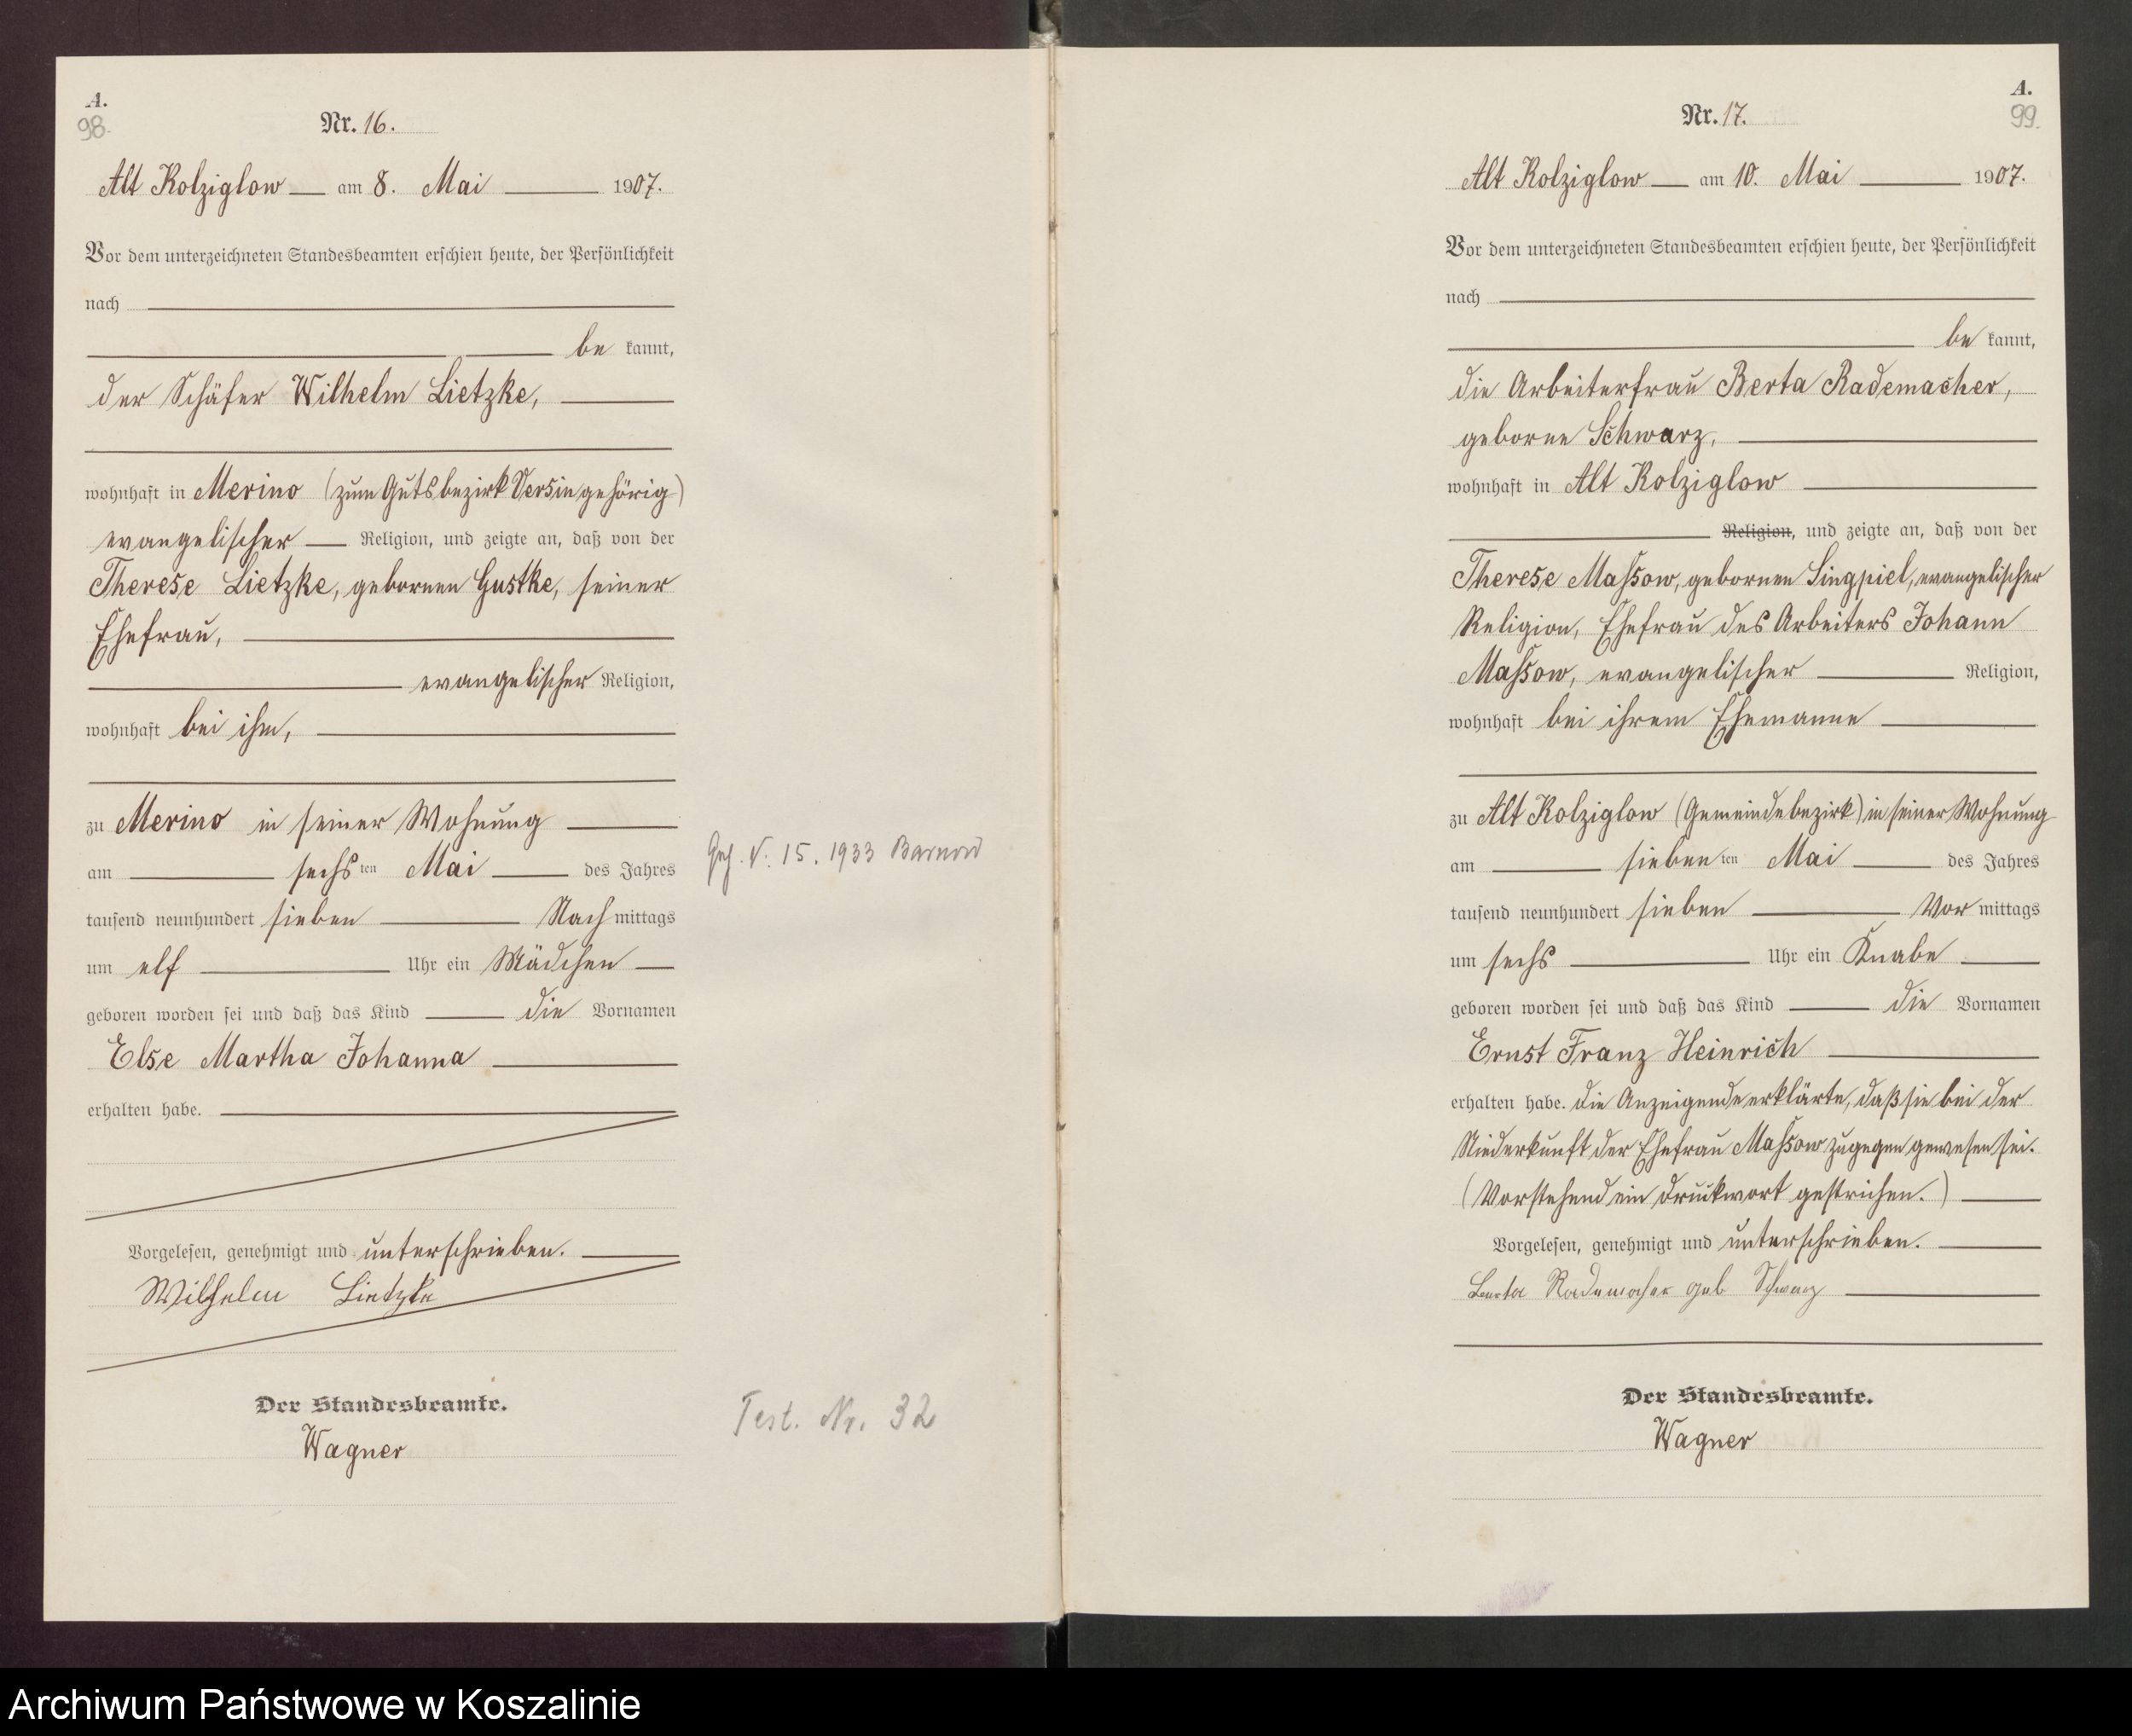 A.
98.
Nr. 16.
Alt Kolziglow am 8. Mai 1907.
Vor dem unterzeichneten Standesbeamten erschien heute, der Persönlichkeit
nach
be kannt,
der Schäfer Wilhelm Lietzke,
wohnhaft in Merino (zum Gutsbezirk Versin gehörig)
evangelischer Religion, und zeigte an, daß von der
Therese Lietzke, gebornen Gustke, seiner
Ehefrau,
evangelischer Religion,
wohnhaft bei ihm,
zu Merino in seiner Wohnung
am sechs ten Mai des Jahres
tausend neunhundert sieben Nach mittags
um elf Uhr ein Mädchen
geboren worden sei und daß das Kind die Vornamen
Else Martha Johanna
erhalten habe.
Vorgelesen, genehmigt und unterschrieben.
Wilhelm Lietzke
Der Standesbeamte.
Wagner
15. 1933 Barnow
Test. Nr. 32
A.
99.
Nr. 17.
Alt Kolziglow am 10. Mai 1907.
Vor dem unterzeichneten Standesbeamten erschien heute, der Persönlichkeit
nach
be kannt,
die Arbeiterfrau Berta Rademacher,
geborne Schwarz,
wohnhaft in Alt Kolziglow
Religion, und zeigte an, daß von der
Therese Massow, gebornen Singpiel, evangelischer
Religion, Ehefrau des Arbeiters Johann
Massow, evangelischer Religion,
wohnhaft bei ihrem Ehemanne
zu Alt Kolziglow (Gemeindebezirk) in seiner Wohnung
am sieben ten Mai des Jahres
tausend neunhundert sieben Vor mittags
um sechs Uhr ein Knabe
geboren worden sei und daß das Kind die Vornamen
Ernst Franz Heinrich
erhalten habe. Die Anzeigende erklärte, daß sie bei der
Niederkunft der Ehefrau Massow zugegen gewesen sei.
(Vorstehend ein Druckwort gestrichen.)
Vorgelesen, genehmigt und unterschrieben.
Berta Rademacher geb Schwarz
Der Standesbeamte.
Wagner
Archiwum Państwowe w Koszalinie